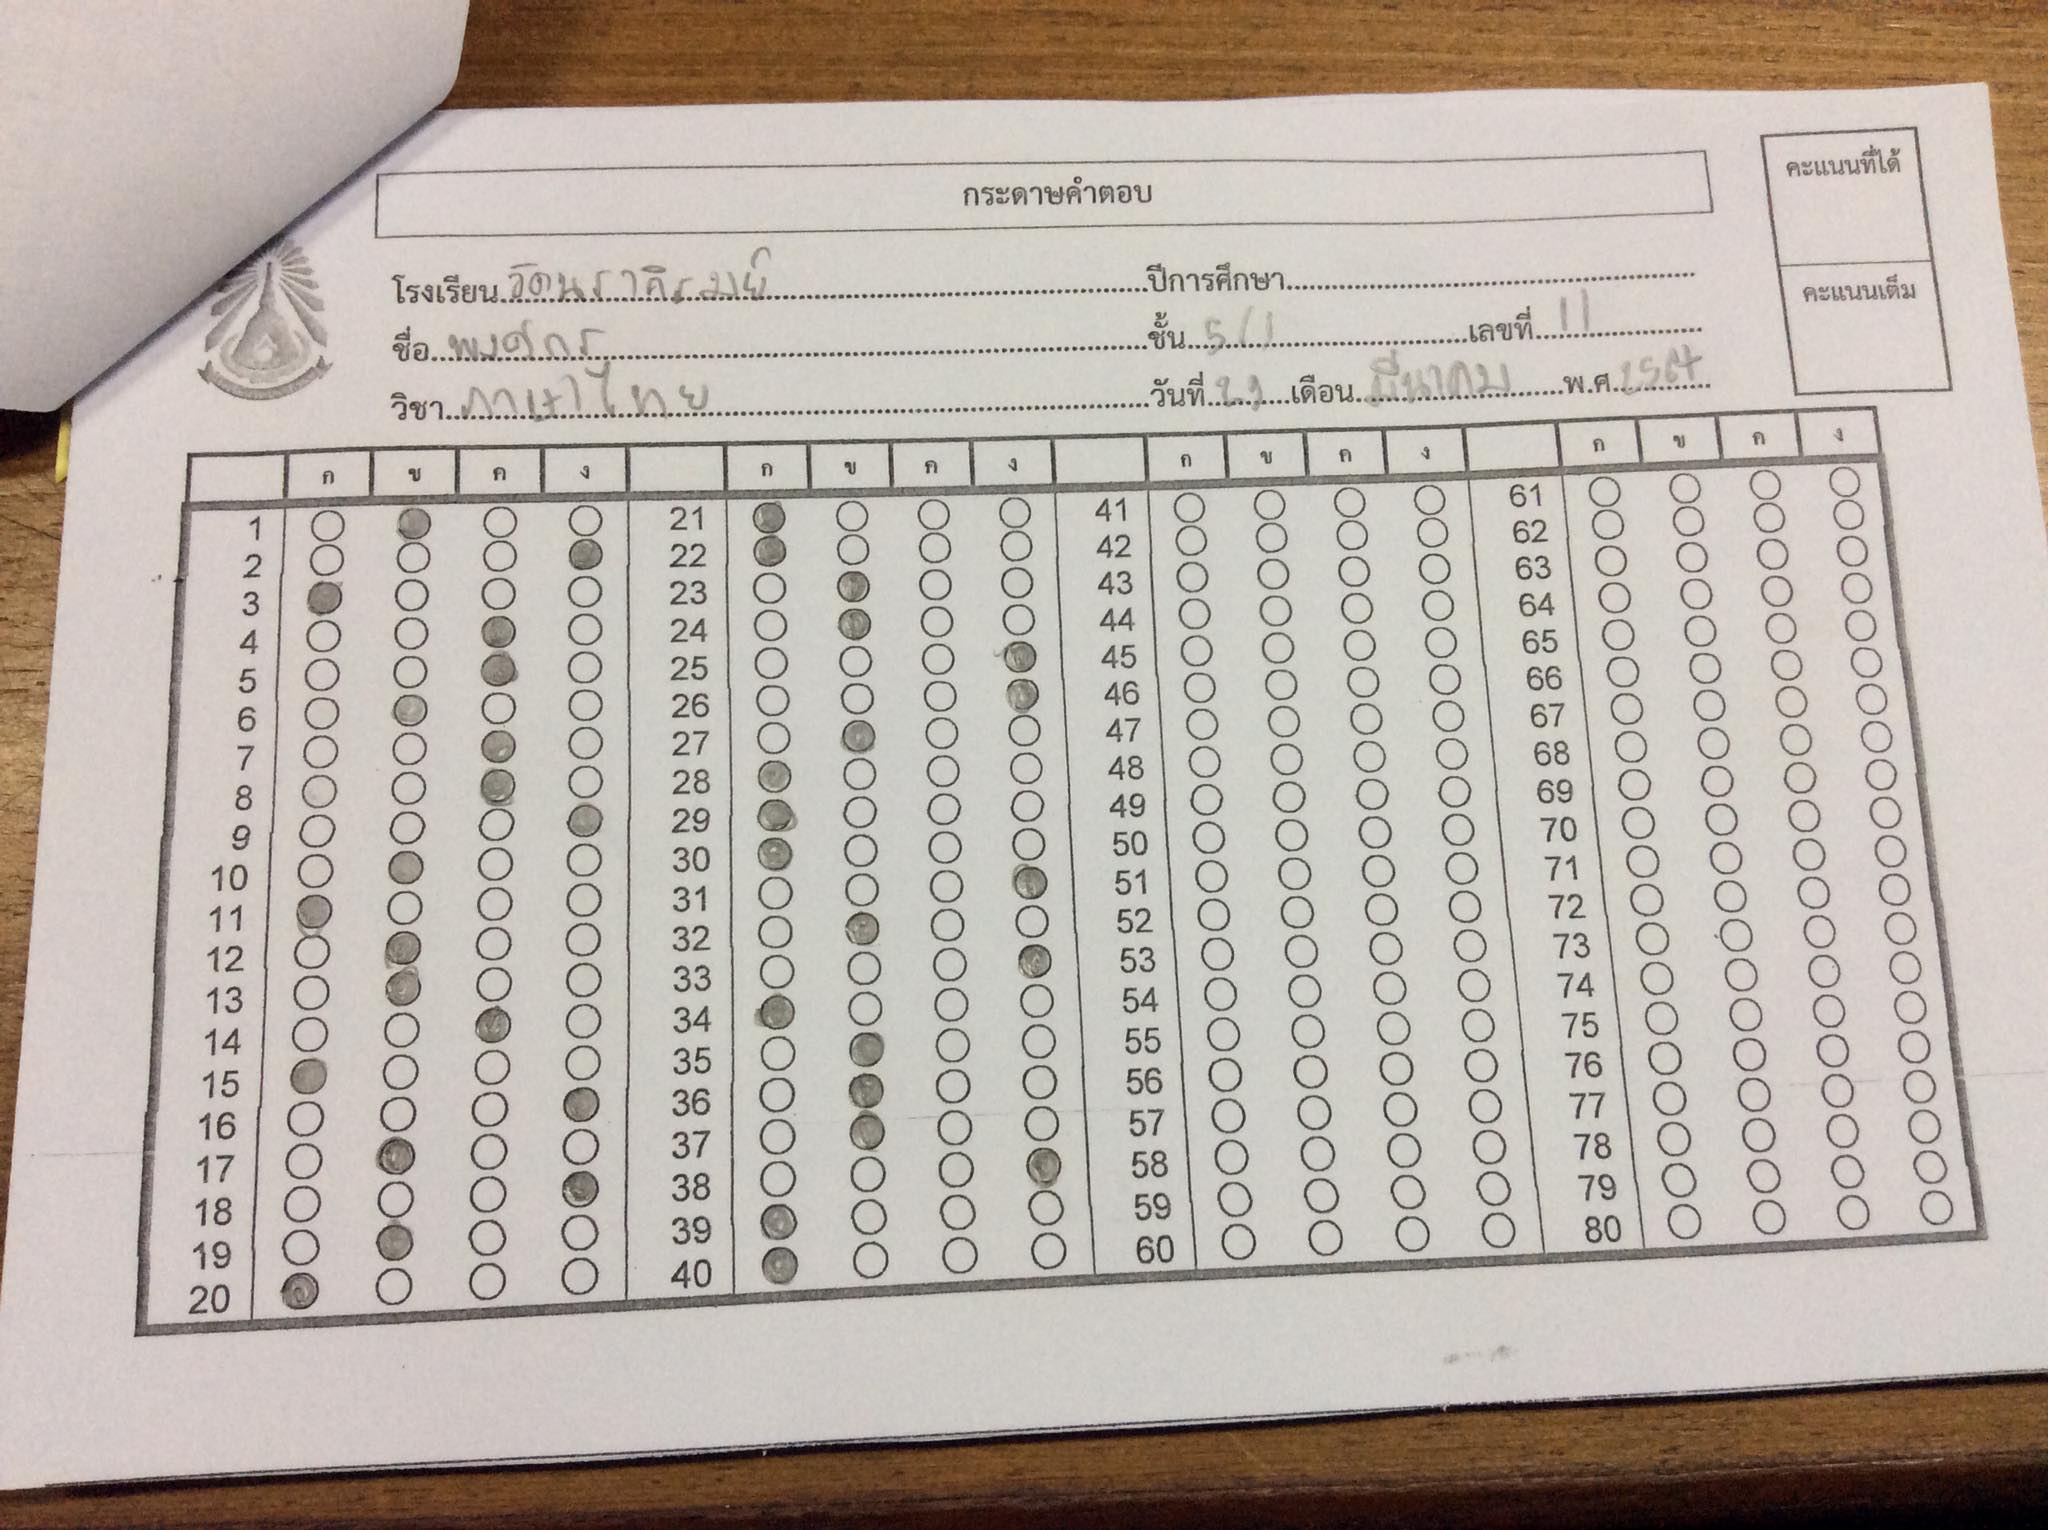 กระดาษคำตอบ
คะแนนที่ได้
คะแนนเต็ม
โรงเรียน วัดนราภิรมย์ ปีการศึกษา
ชื่อ พงศกร ชั้น 5/1 เลขที่ 11
วิชา ภาษาไทย วันที่ 29 เดือน มีนาคม พ.ศ. 2564
ก ข ค ง ก ข ค ง ก ข ค ง ก ข ค ง
1 21 41 61
2 22 42 62
3 23 43 63
4 24 44 64
5 25 45 65
6 26 46 66
7 27 47 67
8 28 48 68
9 29 49 69
10 30 50 70
11 31 51 71
12 32 52 72
13 33 53 73
14 34 54 74
15 35 55 75
16 36 56 76
17 37 57 77
18 38 58 78
19 39 59 79
20 40 60 80